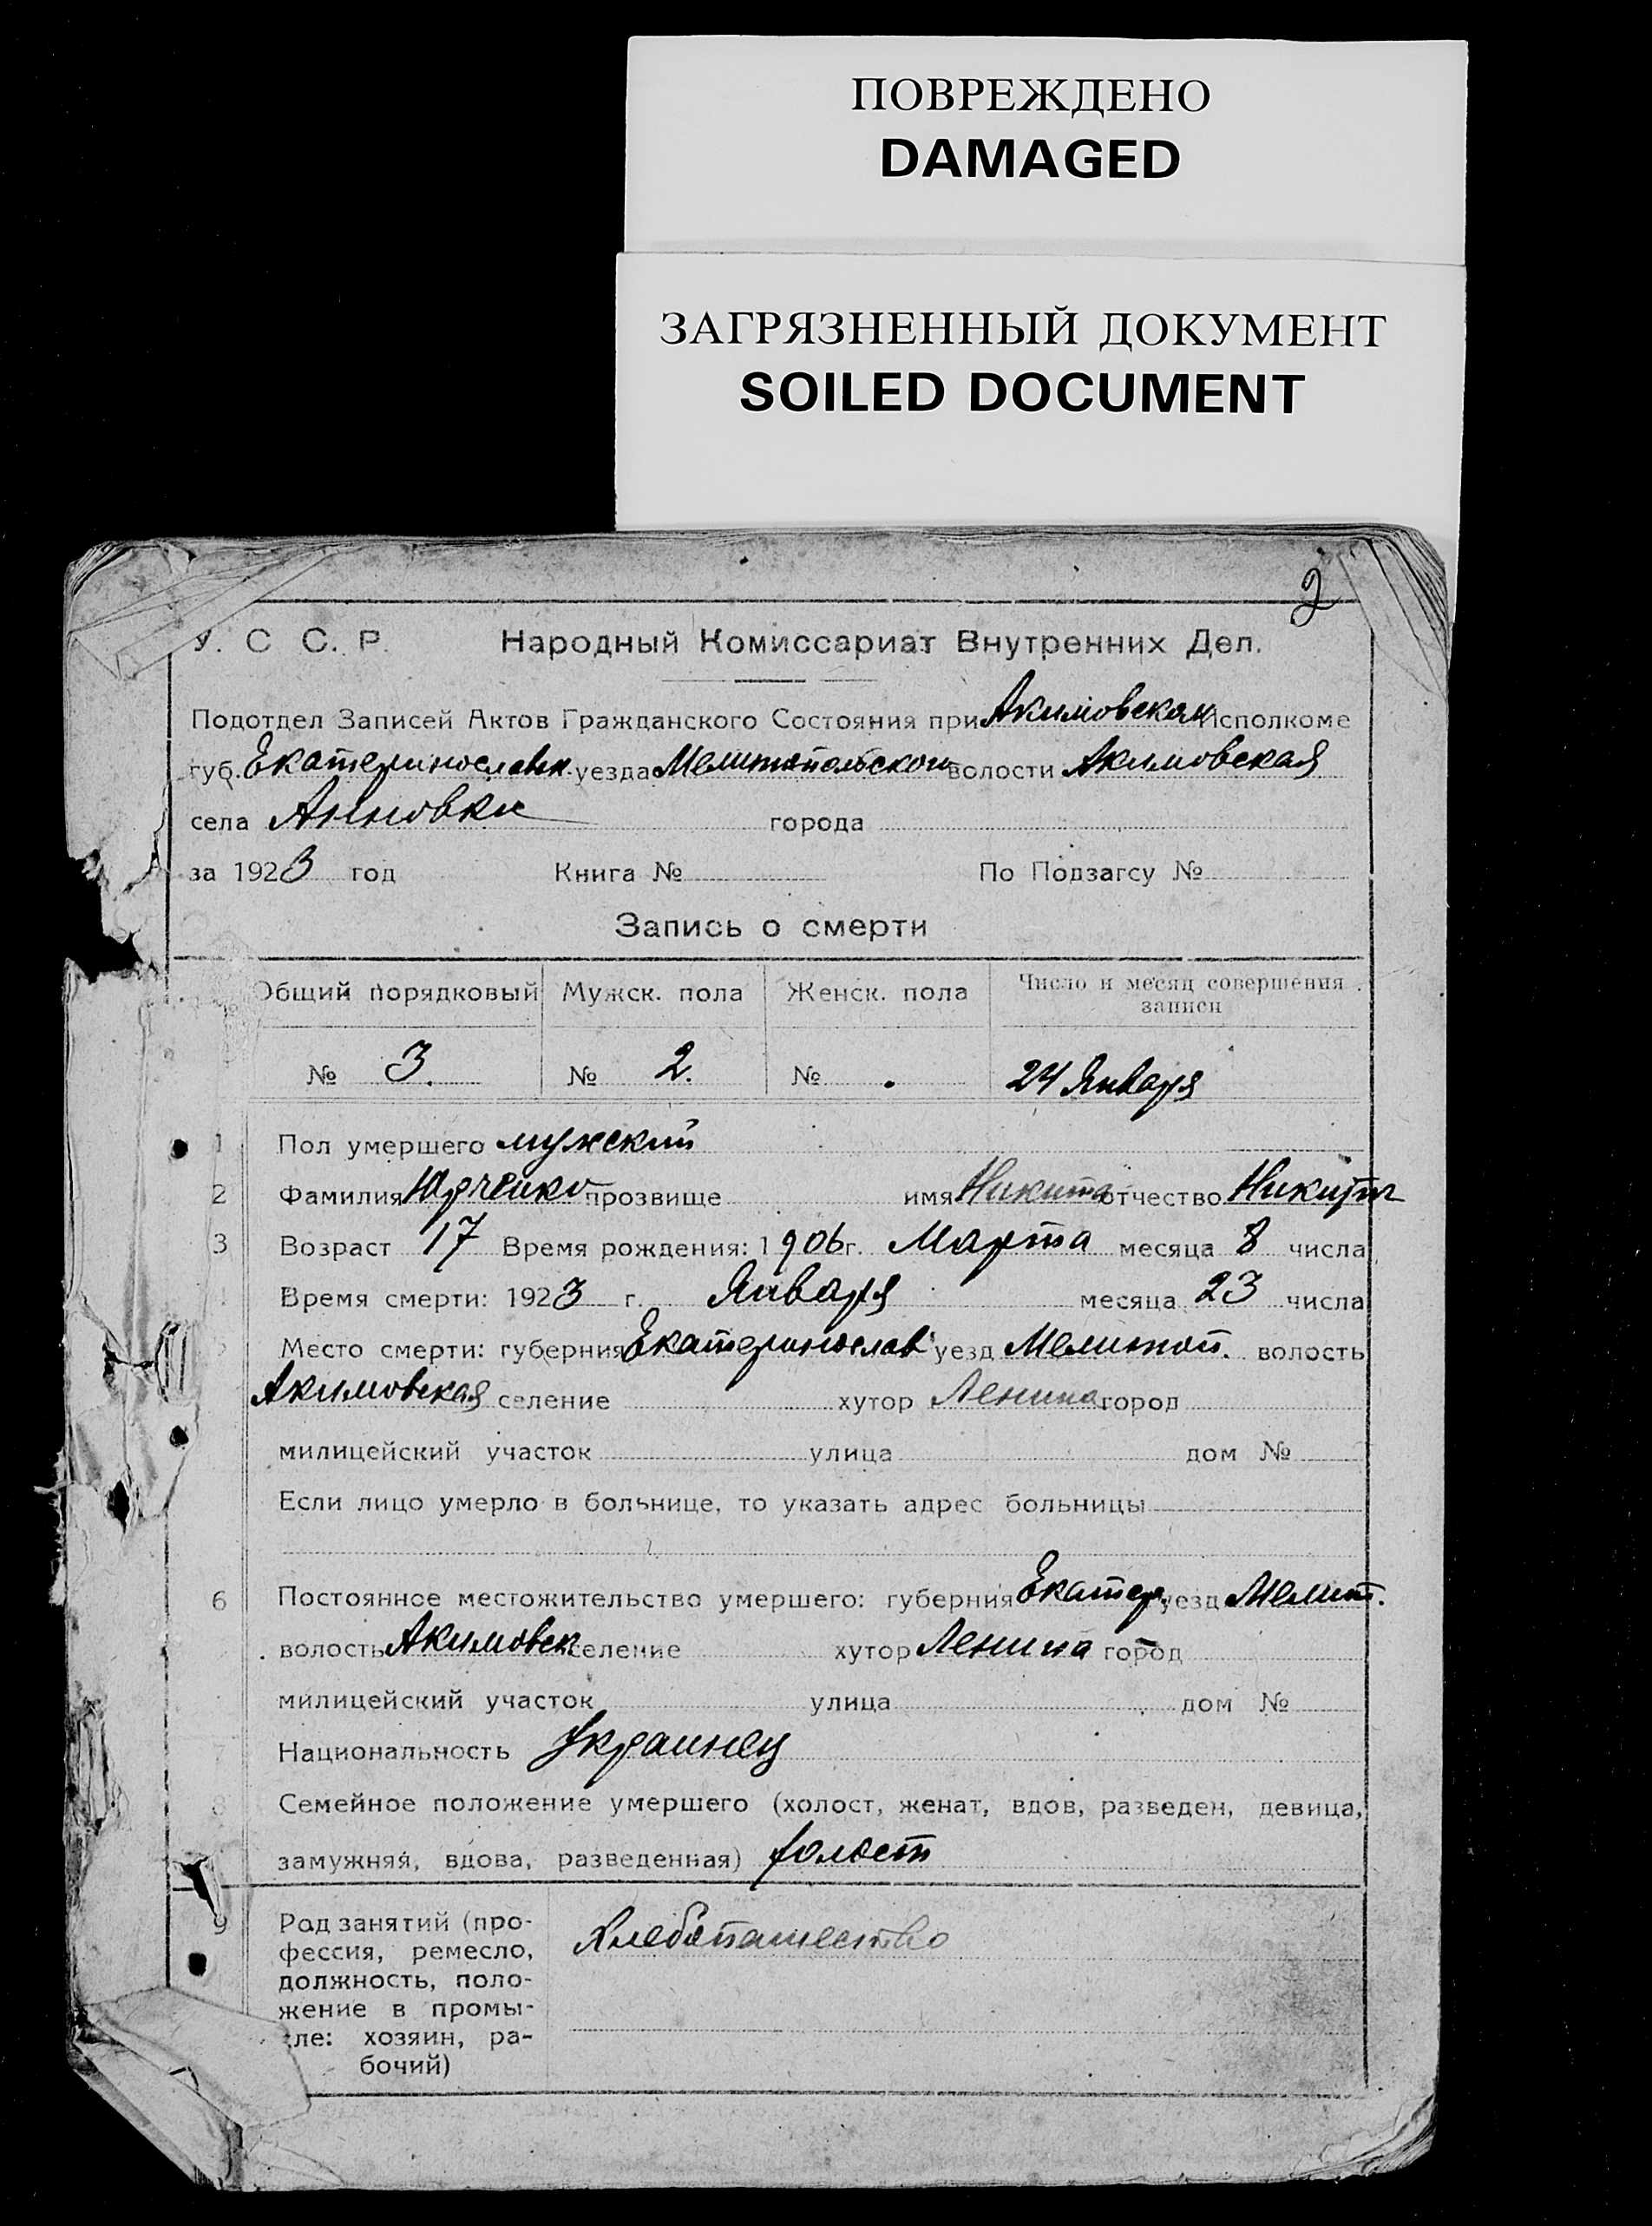 ПОВРЕЖДЕНО
DAMAGED
ЗАГРЯЗНЕННЫЙ ДОКУМЕНТ
SOILED DOCUMENT
2
У. С. С. Р. Народный Комиссариат Внутренних Дел.
Подотдел Записей Актов Гражданского Состояния при Акимовском Исполкоме
губ. Екатеринославск. уезда Мелитопольского волости Акимовская
села Анновка города
за 1923 год Книга № По Подзагсу №
Запись о смерти
Общий порядковый Мужск. пола Женск. пола Число и месяц совершения
записи
№ 3. № 2. № . 24 Января
1 Пол умершего мужский
2 Фамилия Юрченко прозвище имя Никита отчество Никиты
3 Возраст 17 Время рождения: 1906 г. Марта месяца 8 числа
Время смерти: 1923 г. Января месяца 23 числа
Место смерти: губерния Екатеринослав уезд Мелитоп. волость
Акимовская селение хутор Ленина город
милицейский участок улица дом №
Если лицо умерло в больнице, то указать адрес больницы
6 Постоянное местожительство умершего: губерния Екатер. уезд Мелит.
волость Акимовск селение хутор Ленина город
милицейский участок улица дом №
7 Национальность Украинец
8 Семейное положение умершего (холост, женат, вдов, разведен, девица,
замужняя, вдова, разведенная) холост
9 Род занятий (про- Хлебопашество
фессия, ремесло,
должность, поло-
жение в промы-
сле: хозяин, ра-
бочий)